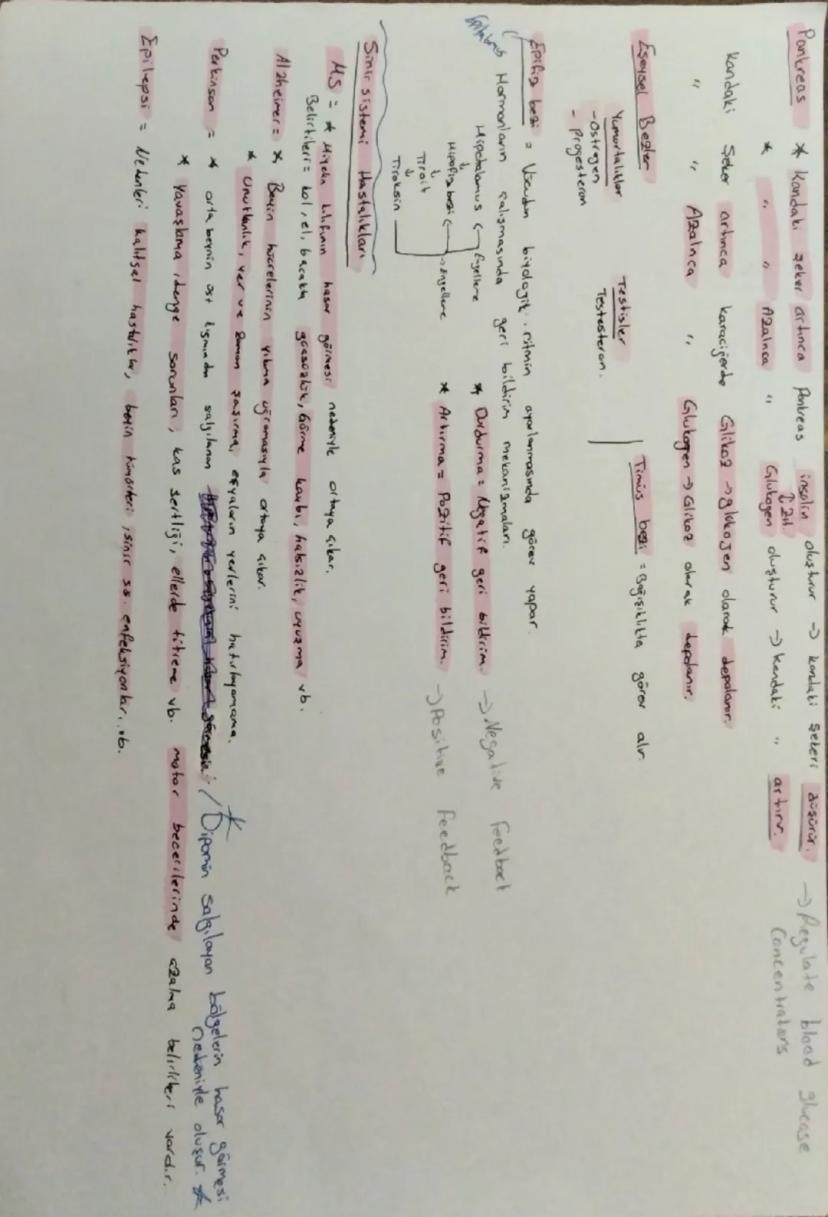 Pankreas * Kandaki şeker artınca Pankreas insülin oluşturur → kandaki şekeri düşürür. → Regulate blood glucose concentrators
↕ zıt
* " " Azalınca " Glukagen oluşturur → kandaki " artırır.
Kandaki şeker artınca karaciğerde Glikoz → glukogen olarak depolanır.
" " Azalınca " Glukogen → Glikoz olarak depolanır.
Eşeysel Bezler
Yumurtalıklar
- Östrogen
- Progesteron
Testisler
Testesteron.
Timüs bezi = Bağışıklıkta görev alır.
Epifiz bezi = Vücudun biyolojik ritmin ayarlanmasında görev yapar.
Hormonların çalışmasında geri bildirim mekanizmaları.
Hipotalamus ← Engelleme
↓
Hipofiz bezi ← Engelleme
↓
Tiroit
↓
Tiroksin
* Durdurma = Negatif geri bildirim. → Negative Feedback
* Artırma = Pozitif geri bildirim. → Positive Feedback
Sinir sistemi Hastalıkları
MS = * Miyelin kılıfının hasar görmesi nedeniyle ortaya çıkar.
Belirtileri = kol, el, bacakta güçsüzlük, Görme kaybı, halsizlik, uyuşma vb.
Alzheimer = * Beyin hücrelerinin yıkıma uğramasıyla ortaya çıkar.
* Unutkanlık, yer ve zaman şaşırma, eşyaların yerlerini hatırlayamama.
Perkinson = * orta beynin üst kısmından salgılanan / Dipomin salgılayan bölgelerin hasar görmesi nedeniyle oluşur. *
* Yavaşlama, denge sorunları, kas sertliği, ellerde titreme vb. motor becerilerinde azalma belirtileri vardır.
Epilepsi = Nedenleri kalıtsal hastalıklar, beyin tümörleri, sinir ss. enfeksiyonları, vb.